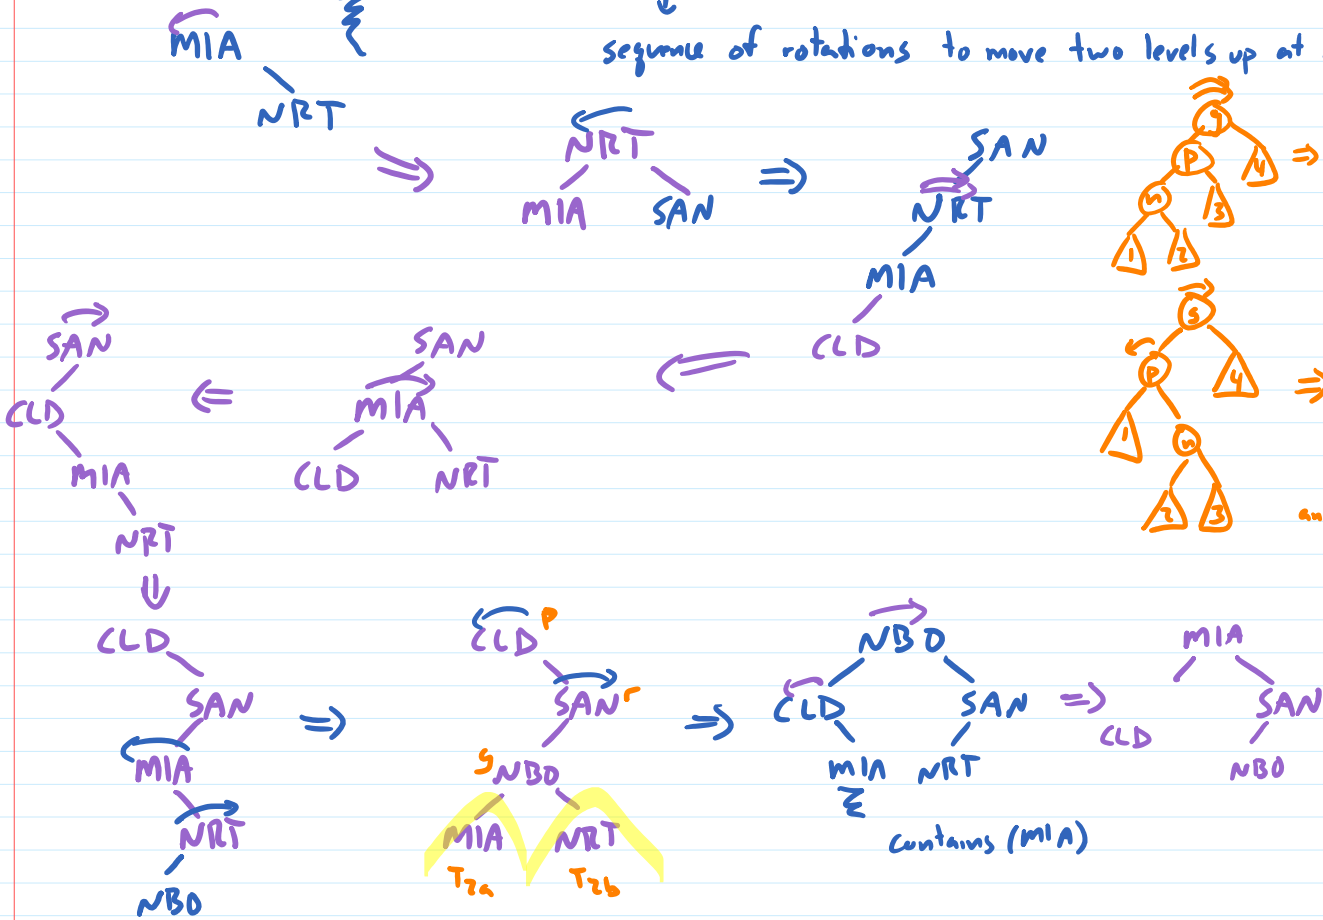 MIA
NRT
sequence of rotations to move two levels up at
NRT
MIA
SAN
SAN
NRT
MIA
CLD
g
P
4
n
3
1
2
SAN
CLD
MIA
NRT
SAN
MIA
CLD
NRT
S
P
4
1
n
2
3
an
CLD
SAN
MIA
NRT
NBO
CLD
P
SAN
r
g
NBO
MIA
NRT
T2a
T2b
NBO
CLD
SAN
MIA
NRT
contains (MIA)
MIA
SAN
CLD
NBO